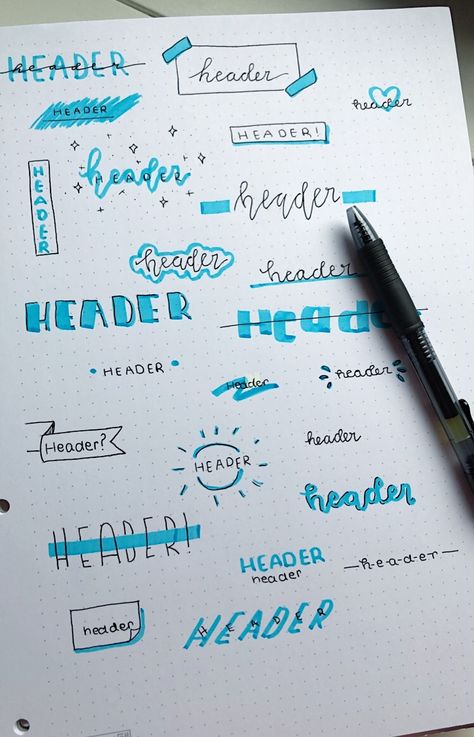 HEADER
header
header
header
HEADER
HEADER!
HEADER
header
HEADER
header
header
header
HEADER
Header
HEADER
Header
header
Header?
HEADER
header
header
HEADER!
HEADER
header
-h-e-a-d-e-r-
header
HEADER
HEADER